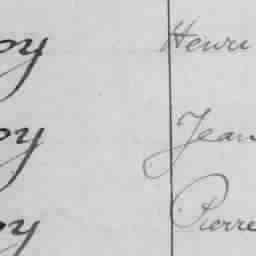 oy Henri
oy Jean
oy Pierre